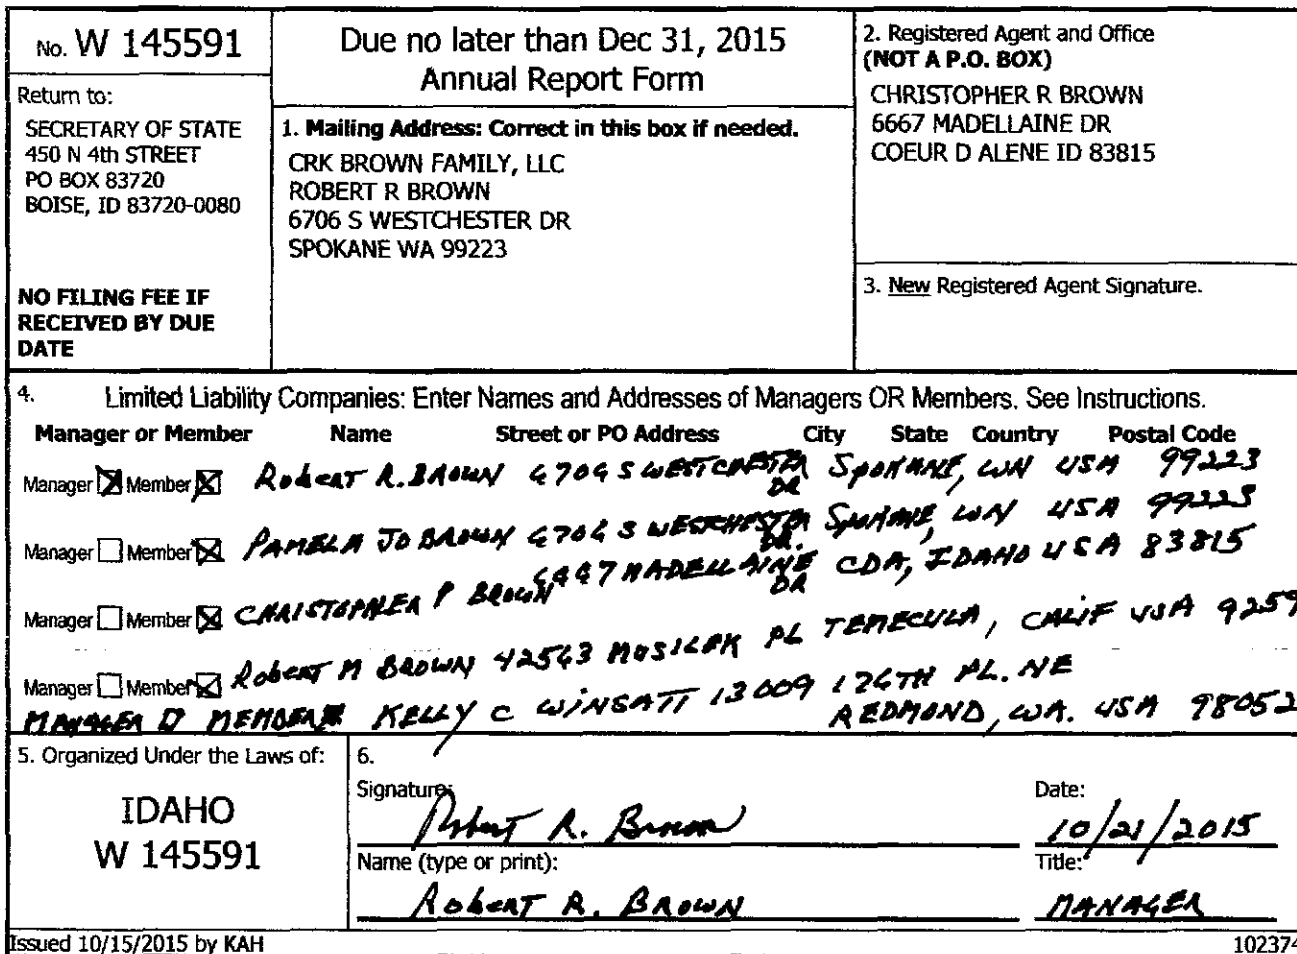 No. W 145591
Return to:
SECRETARY OF STATE
450 N 4th STREET
PO BOX 83720
BOISE, ID 83720-0080
NO FILING FEE IF
RECEIVED BY DUE
DATE
Due no later than Dec 31, 2015
Annual Report Form
1. Mailing Address: Correct in this box if needed.
CRK BROWN FAMILY, LLC
ROBERT R BROWN
6706 S WESTCHESTER DR
SPOKANE WA 99223
2. Registered Agent and Office
(NOT A P.O. BOX)
CHRISTOPHER R BROWN
6667 MADELLAINE DR
COEUR D ALENE ID 83815
3. New Registered Agent Signature.
4. Limited Liability Companies: Enter Names and Addresses of Managers OR Members. See Instructions.
Manager or Member Name Street or PO Address City State Country Postal Code
Manager Member Robert R. BROWN 6706 S WESTCHESTER DR SPOKANE, WA USA 99223
Manager Member PAMELA JO BROWN 6706 S WESTCHESTER DR. SPOKANE, WA USA 99223
Manager Member CHRISTOPHER BROWN 6667 MADELLAINE DR CDA, IDAHO USA 83815
Manager Member Robert M BROWN 42563 PL TEMECULA, CALIF USA 9259
MANAGER MEMBER KELLY C 13009 176TH PL. NE
REDMOND, WA. USA 98052
5. Organized Under the Laws of:
IDAHO
W 145591
6.
Signature: Robert R. Brown
Date: 10/21/2015
Name (type or print): Robert R. BROWN
Title: MANAGER
Issued 10/15/2015 by KAH
102374